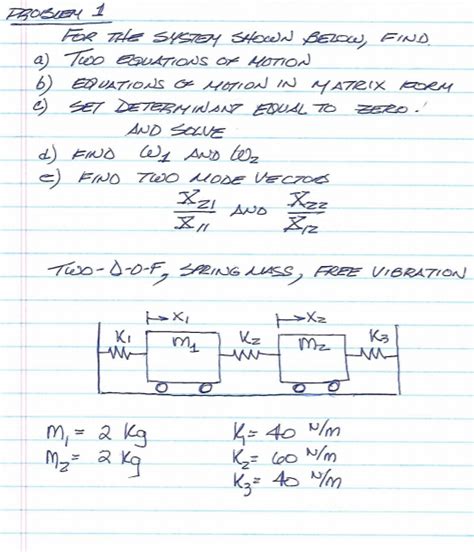 PROBLEM 1
FOR THE SYSTEM SHOWN BELOW, FIND
a) TWO EQUATIONS OF MOTION
b) EQUATIONS OF MOTION IN MATRIX FORM
c) SET DETERMINANT EQUAL TO ZERO.
AND SOLVE
d) FIND ω1 AND ω2
e) FIND TWO MODE VECTORS
X21/X11 AND X22/X12
TWO-D-O-F, SPRING MASS, FREE VIBRATION
X1 X2
K1 m1 K2 m2 K3
m1 = 2 Kg K1= 40 N/m
m2 = 2 Kg K2= 60 N/m
K3= 40 N/m